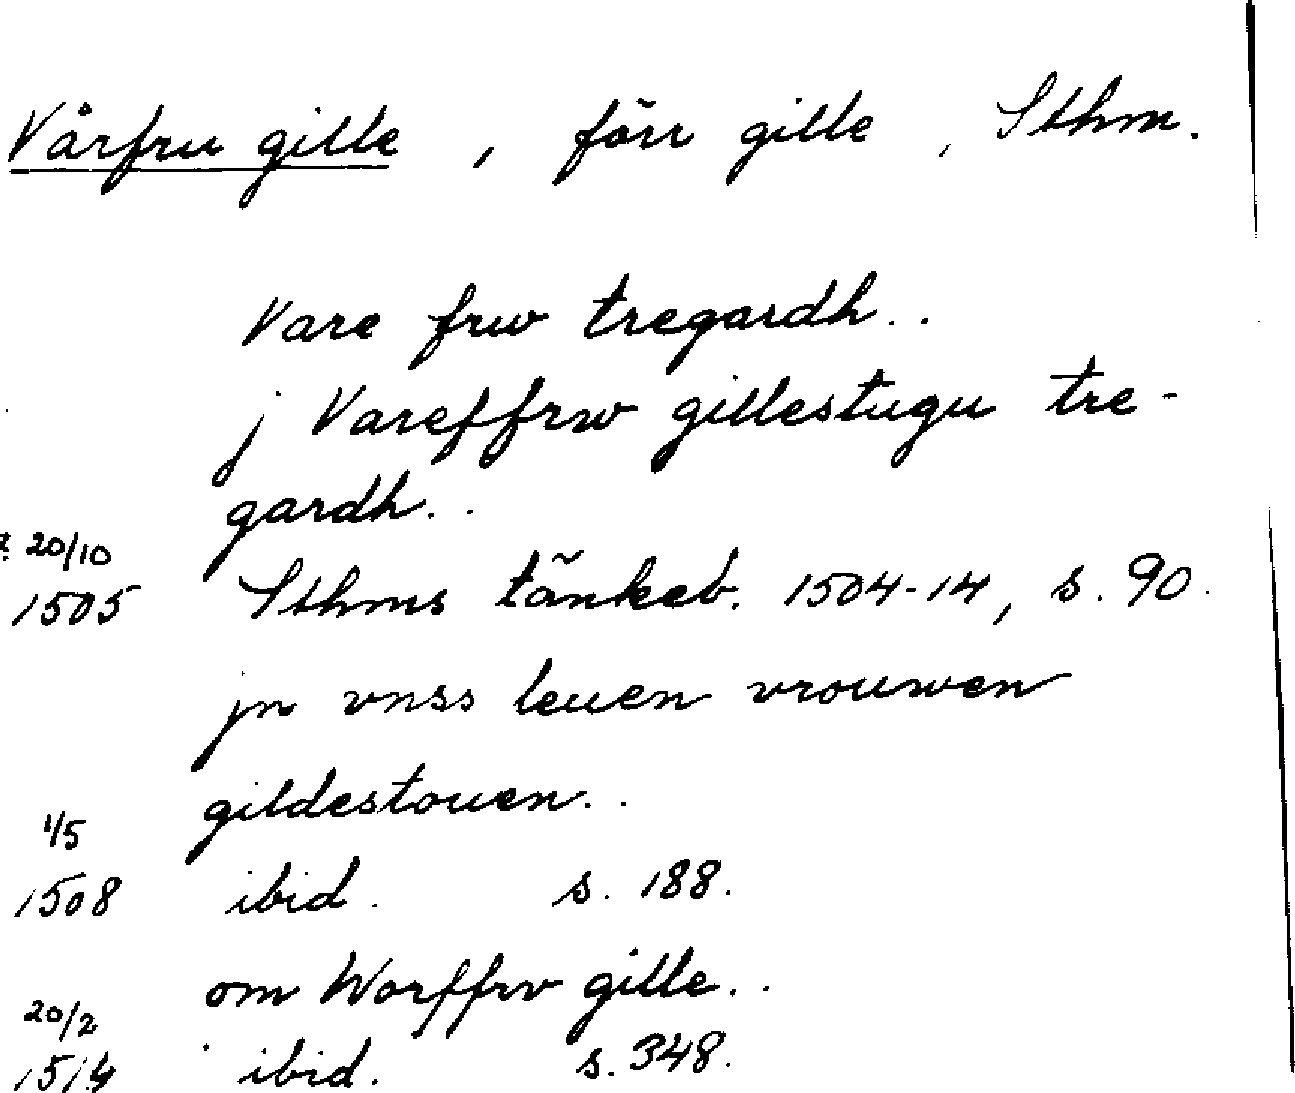 Vårfru gille, förr gille, Sthm.
Vare frw tregardh..
j Vareffrw gillestugu tre-
gardh..
20/10
1505 Sthms tänkeb. 1504-14, s. 90.
jn vnss leuen vrouwen
gildestouen..
1/5
1508 ibid. s. 188.
om Worffrv gille..
20/2
1514 ibid. s. 348.